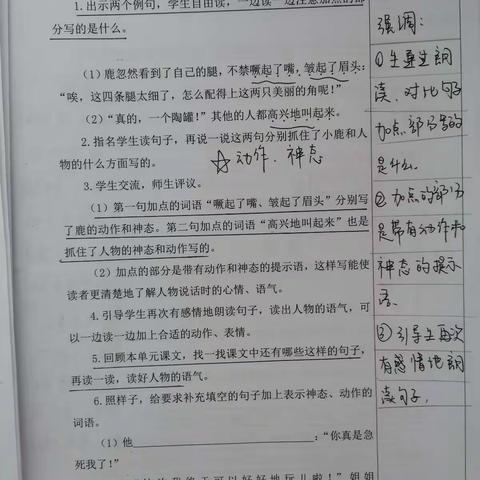 1.出示两个例句，学生自由读，一边读一边注意加点的部
分写的是什么。
（1）鹿忽然看到了自己的腿，不禁噘起了嘴，皱起了眉头：
“唉，这四条腿太细了，怎么配得上这两只美丽的角呢！”
（2）“真的，一个陶罐！”其他的人都高兴地叫起来。
2.指名学生读句子，再说一说这两句分别抓住了小鹿和人
物的什么方面写的。
☆动作、神态
3.学生交流，师生评议。
（1）第一句加点的词语“噘起了嘴、皱起了眉头”分别写
了鹿的动作和神态。第二句加点的词语“高兴地叫起来”也是
抓住了人物的神态和动作写的。
（2）加点的部分是带有动作和神态的提示语，这样写能使
读者更清楚地了解人物说话时的心情、语气。
4.引导学生再次有感情地朗读句子，读出人物的语气，可
以一边读一边加上合适的动作、表情。
5.回顾本单元课文，找一找课文中还有哪些这样的句子，
再读一读，读好人物的语气。
6.照样子，给要求补充填空的句子加上表示神态、动作的
词语。
（1）他____________________：“你真是急
死我了！”
可以好好地玩儿啦！”姐姐
强调：
①生重生朗
读，对比句子
加点部分写的
是什么。
②加点的部分
是带有动作和
神态的提示
语。
③引导生再次
有感情地朗
读句子。